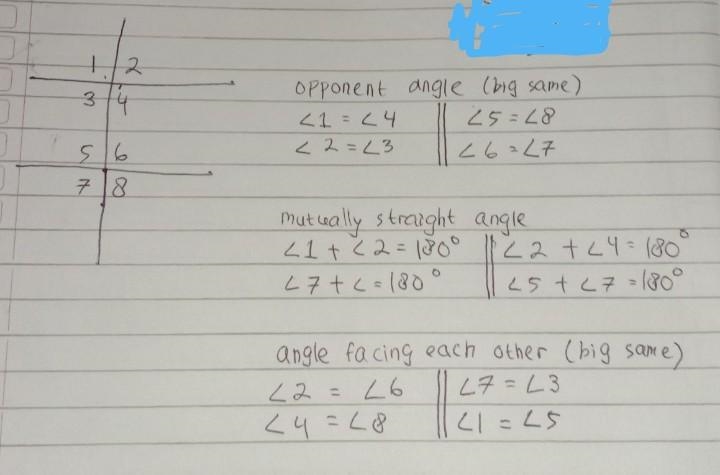 1 2
3 4
5 6
7 8
opponent angle (big same)
∠1 = ∠4 || ∠5 = ∠8
∠2 = ∠3 || ∠6 = ∠7
mutually straight angle
∠1 + ∠2 = 180° || ∠2 + ∠4 = 180°
∠7 + ∠ = 180° || ∠5 + ∠7 = 180°
angle facing each other (big same)
∠2 = ∠6 || ∠7 = ∠3
∠4 = ∠8 || ∠1 = ∠5